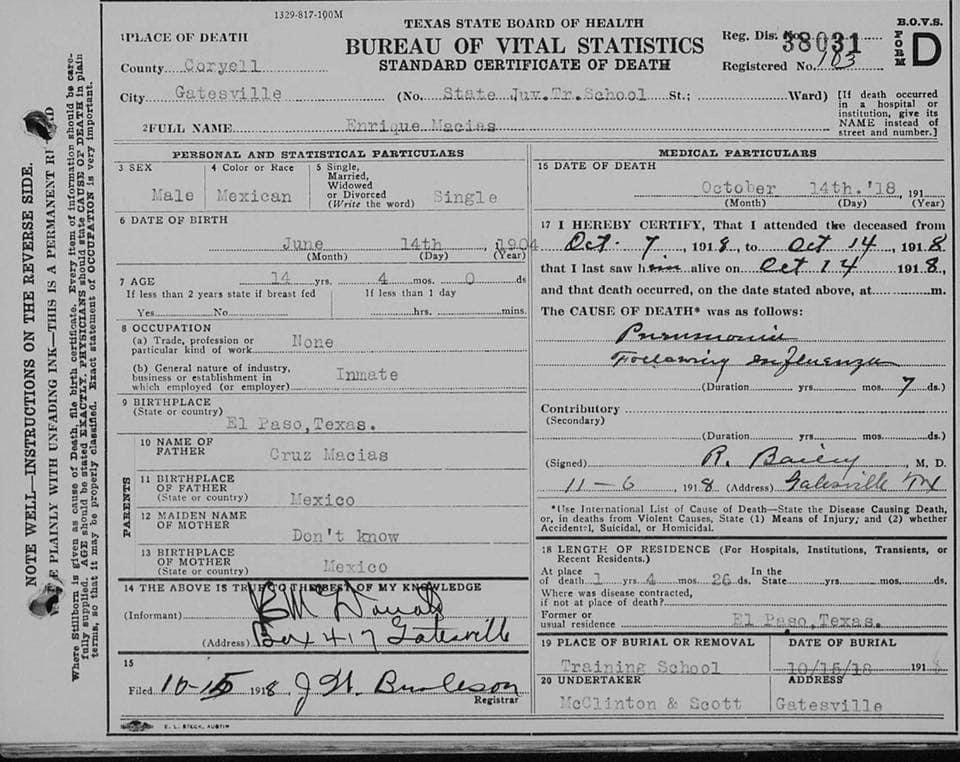 1329-817-100M
TEXAS STATE BOARD OF HEALTH
BUREAU OF VITAL STATISTICS
STANDARD CERTIFICATE OF DEATH
B.O.V.S.
FORM D
Reg. Dis. No. 38031
Registered No. 103
1PLACE OF DEATH
County Coryell
City Gatesville (No. State Juv.Tr.School St.; Ward)
[If death occurred in a hospital or institution, give its NAME instead of street and number.]
2FULL NAME Enrique Macias
PERSONAL AND STATISTICAL PARTICULARS
3 SEX Male
4 Color or Race Mexican
5 Single, Married, Widowed or Divorced (Write the word) Single
6 DATE OF BIRTH
June 14th, 1904
(Month) (Day) (Year)
7 AGE 14 yrs. 4 mos. 0 ds
If less than 2 years state if breast fed
Yes No
If less than 1 day
hrs. mins.
8 OCCUPATION
(a) Trade, profession or particular kind of work None
(b) General nature of industry, business or establishment in which employed (or employer) Inmate
9 BIRTHPLACE
(State or country)
El Paso, Texas.
PARENTS
10 NAME OF FATHER Cruz Macias
11 BIRTHPLACE OF FATHER (State or country) Mexico
12 MAIDEN NAME OF MOTHER Don't know
13 BIRTHPLACE OF MOTHER (State or country) Mexico
14 THE ABOVE IS TRUE TO THE BEST OF MY KNOWLEDGE
(Informant) B McDonald
(Address) Box 417 Gatesville
15
Filed 10-15 1918. J W Burleson
Registrar
E. L. STECK, AUSTIN
MEDICAL PARTICULARS
16 DATE OF DEATH
October 14th. '18, 191
(Month) (Day) (Year)
17 I HEREBY CERTIFY, That I attended the deceased from
Oct. 7, 1918, to Oct 14, 1918
that I last saw him alive on Oct 14 1918,
and that death occurred, on the date stated above, at m.
The CAUSE OF DEATH* was as follows:
Pneumonia
Following Influenza
(Duration yrs. mos. 7 ds.)
Contributory
(Secondary)
(Duration yrs. mos. ds.)
(Signed) R. Bailey, M. D.
11-6, 1918 (Address) Gatesville Tex
*Use International List of Cause of Death—State the Disease Causing Death,
or, in deaths from Violent Causes, State (1) Means of Injury; and (2) whether
Accidental, Suicidal, or Homicidal.
18 LENGTH OF RESIDENCE (For Hospitals, Institutions, Transients, or
Recent Residents.)
At place of death 1 yrs. 4 mos. 26 ds. In the State yrs. mos. ds.
Where was disease contracted,
if not at place of death?
Former or usual residence El Paso, Texas.
19 PLACE OF BURIAL OR REMOVAL
Training School
DATE OF BURIAL
10/15/18 191
20 UNDERTAKER
McClinton & Scott
ADDRESS
Gatesville
NOTE WELL—INSTRUCTIONS ON THE REVERSE SIDE.
PLAINLY WITH UNFADING INK—THIS IS A PERMANENT
Where Stillborn is given as cause of Death, file birth certificate. Every item of information should be care-
fully supplied. AGE should be stated EXACTLY. PHYSICIANS should state CAUSE OF DEATH in plain
terms, so that it may be properly classified. Exact statement of OCCUPATION is very important.